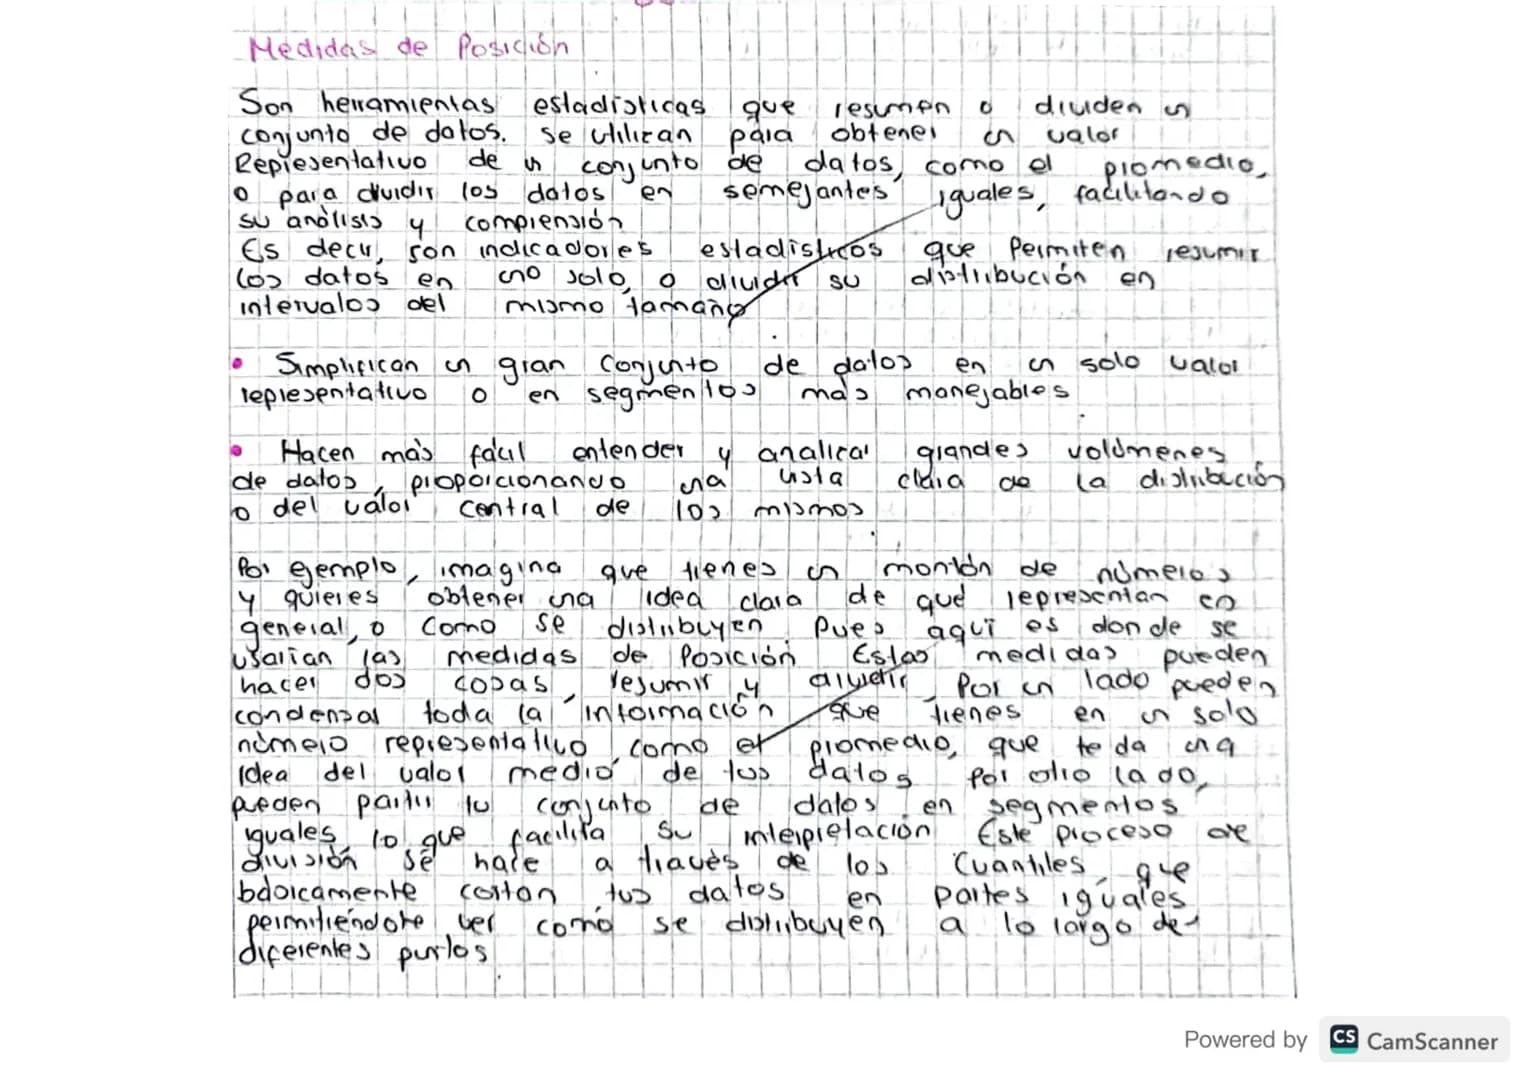 Medidas de Posición
Son herramientas estadísticas que resumen o dividen un
conjunto de datos. se utilizan para obtener un valor
Representativo de un conjunto de datos, como el promedio,
o para dividir los datos en semejantes iguales, facilitando
su análisis y comprensión
Es decir, son indicadores estadísticos que Permiten resumir
los datos en uno solo, o dividir su distribución en
intervalos del mismo tamaño
• Simplifican un gran Conjunto de datos en un solo valor
representativo o en segmentos más manejables
• Hacen más fácil entender y analizar grandes volúmenes
de datos, proporcionando una vista clara de la distribución
o del valor central de los mismos
Por ejemplo, imagina que tienes un montón de números
y quieres obtener una idea clara de que representan en
general, o como se distribuyen. Pues aquí es donde se
usarían las medidas de Posición Estas medidas pueden
hacer dos cosas, resumir y dividir. Por un lado pueden
condensar toda la información que tienes en un solo
número representativo, como el promedio, que te da una
idea del valor medio de tus datos Por otro lado,
pueden partir tu conjunto de datos en segmentos
iguales, lo que facilita su interpretación Este proceso de
división se hace a través de los Cuantiles, que
básicamente cortan tus datos en partes iguales
permitiéndote ver como se distribuyen a lo largo de
diferentes puntos
Powered by CS CamScanner